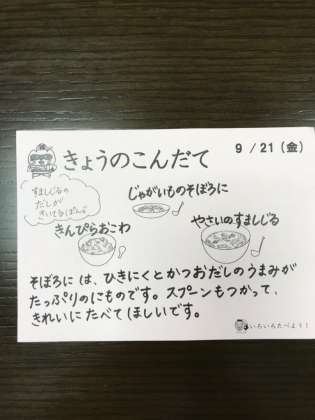 きょうのこんだて
9/21(金)
すましじるの
だしが
きいてるぽん
じゃがいものそぼろに
きんぴらおこわ
やさいのすましじる
そぼろには、ひきにくとかつおだしのうまみが
たっぷりのにものです。スプーンもつかって、
きれいにたべてほしいです。
いろいろたべよう!